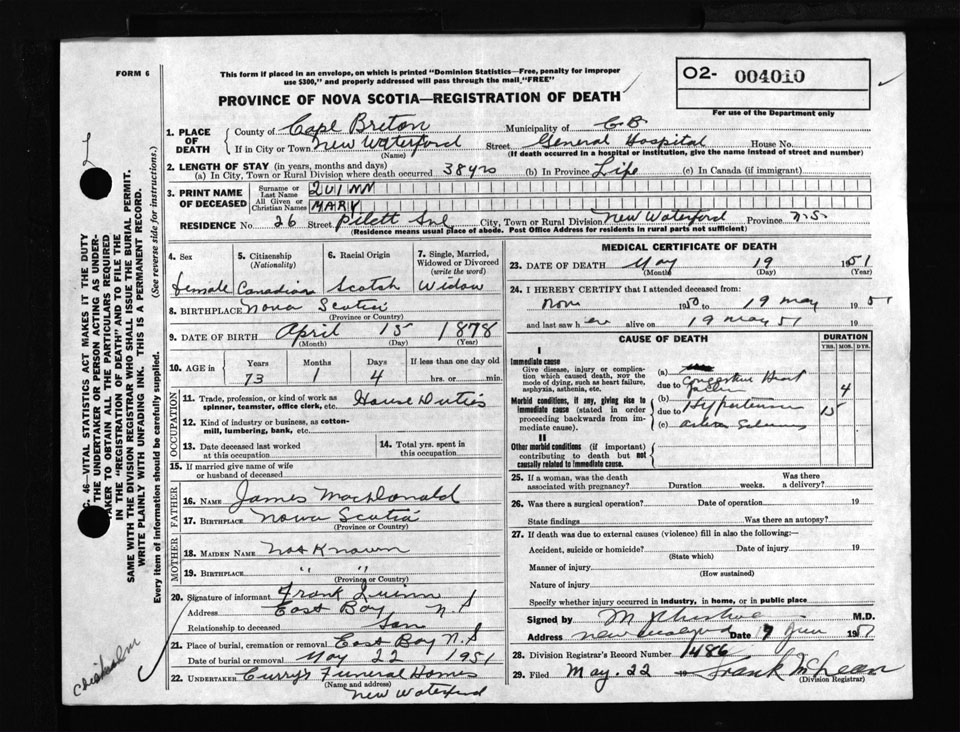 FORM 6
This form if placed in an envelope, on which is printed "Dominion Statistics—Free, penalty for improper
use $300," and properly addressed will pass through the mail "FREE"
PROVINCE OF NOVA SCOTIA—REGISTRATION OF DEATH
O2- 004010
For use of the Department only
1. PLACE OF DEATH County of Cape Breton Municipality of C.B.
If in City or Town New Waterford Street General Hospital House No.
(Name) (If death occurred in a hospital or institution, give the name instead of street and number)
2. LENGTH OF STAY (in years, months and days)
(a) In City, Town or Rural Division where death occurred 38 yrs (b) In Province Life (c) In Canada (if immigrant)
3. PRINT NAME OF DECEASED Surname or Last Name QUINN
All Given or Christian Names MARY
RESIDENCE No. 26 Street City, Town or Rural Division New Waterford Province N.S.
(Residence means usual place of abode. Post Office Address for residents in rural parts not sufficient)
4. Sex 5. Citizenship (Nationality) 6. Racial Origin 7. Single, Married, Widowed or Divorced (write the word)
female Canadian Scotch Widow
8. BIRTHPLACE Nova Scotia
(Province or Country)
9. DATE OF BIRTH April 15 1878
(Month) (Day) (Year)
10. AGE in Years Months Days If less than one day old
73 1 4 hrs. or min.
OCCUPATION
11. Trade, profession, or kind of work as spinner, teamster, office clerk, etc. House Duties
12. Kind of industry or business, as cotton-mill, lumbering, bank, etc.
13. Date deceased last worked at this occupation 14. Total yrs. spent in this occupation
15. If married give name of wife or husband of deceased
FATHER
16. NAME James MacDonald
17. BIRTHPLACE Nova Scotia
(Province or Country)
MOTHER
18. MAIDEN NAME Not Known
19. BIRTHPLACE " "
(Province or Country)
20. Signature of informant Frank Quinn
Address East Bay N.S
Relationship to deceased Son
21. Place of burial, cremation or removal East Bay N.S
Date of burial or removal May 22 1951
22. UNDERTAKER Curry's Funeral Homes
(Name and address)
New Waterford
MEDICAL CERTIFICATE OF DEATH
23. DATE OF DEATH May 19 1951
(Month) (Day)
24. I HEREBY CERTIFY that I attended deceased from:
Nov 1950 to 19 May 1951
and last saw her alive on 19 May 51 19
CAUSE OF DEATH DURATION
YRS. MOS. DYS.
I
Immediate cause
Give disease, injury or complication which caused death, not the mode of dying, such as heart failure, asphyxia, asthenia, etc.
(a)
due to Congestive Heart 4
Morbid conditions, if any, giving rise to immediate cause (stated in order proceeding backwards from immediate cause).
(b)
due to Hypertension 15
(c)
II
Other morbid conditions (if important) contributing to death but not causally related to immediate cause.
25. If a woman, was the death associated with pregnancy? Duration weeks. Was there a delivery?
26. Was there a surgical operation? Date of operation 19
State findings Was there an autopsy?
27. If death was due to external causes (violence) fill in also the following:—
Accident, suicide or homicide? Date of injury 19
(State which)
Manner of injury
(How sustained)
Nature of injury
Specify whether injury occurred in industry, in home, or in public place
Signed by M.D.
Address Date
28. Division Registrar's Record Number 1486
29. Filed May. 22 19 Frank McLean
(Division Registrar)
C. 46—VITAL STATISTICS ACT MAKES IT THE DUTY
THE UNDERTAKER OR PERSON ACTING AS UNDER-
AKER TO OBTAIN ALL THE PARTICULARS REQUIRED
IN THE "REGISTRATION OF DEATH" AND TO FILE THE
SAME WITH THE DIVISION REGISTRAR WHO SHALL ISSUE THE BURIAL PERMIT.
WRITE PLAINLY WITH UNFADING INK. THIS IS A PERMANENT RECORD.
Every item of information should be carefully supplied. (See reverse side for instructions.)
Chisholm